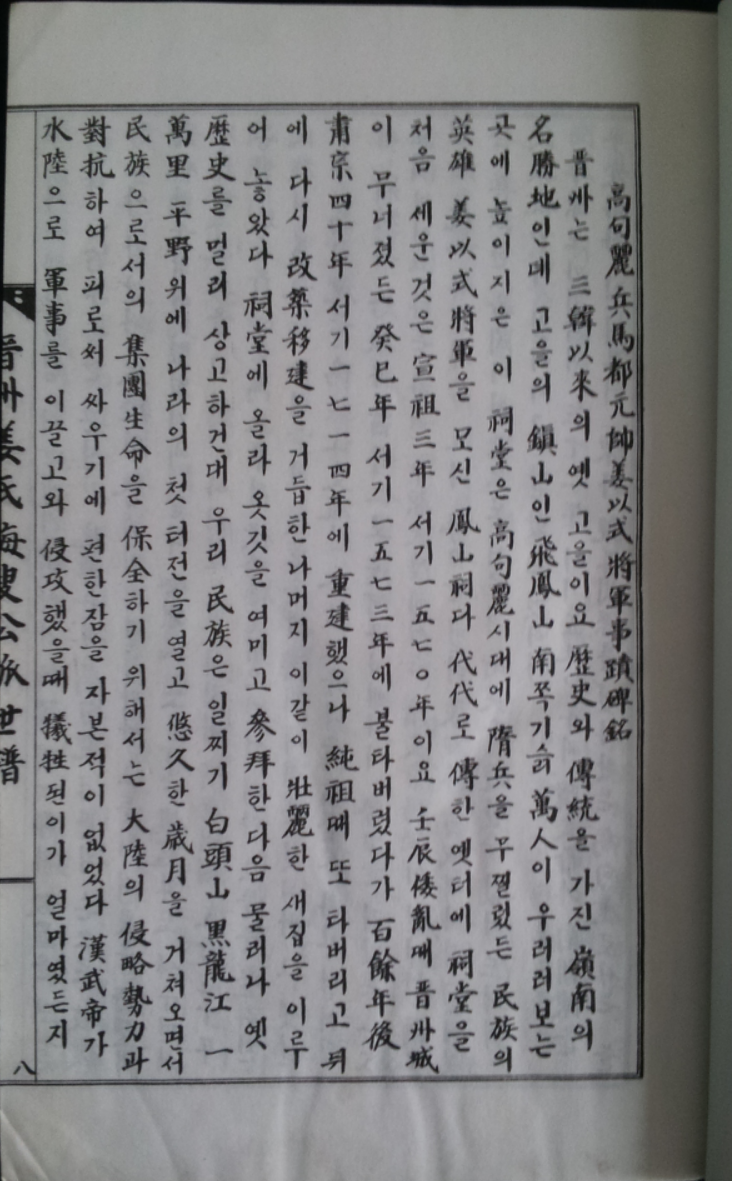 高句麗兵馬都元帥姜以式將軍事蹟碑銘
晋州는 三韓以來의 옛 고을이요 歷史와 傳統을 가진 嶺南의
名勝地인데 고을의 鎭山인 飛鳳山 南쪽기슭 萬人이 우러러보는
곳에 높이지은 이 祠堂은 高句麗시대에 隋兵을 무찔렀든 民族의
英雄 姜以式將軍을 모신 鳳山祠다 代代로 傳한 옛터에 祠堂을
처음 세운것은 宣祖三年 서기一五七○年이요 壬辰倭亂때 晋州城
이 무너졌든 癸巳年 서기一五七三年에 불타버렸다가 百餘年後
肅宗四十年 서기一七一四年에 重建했으나 純祖때 또 타버리고 뒤
에 다시 改築移建을 거듭한나머지 이같이 壯麗한 새집을 이루
어 놓았다 祠堂에 올라 옷깃을 여미고 參拜한다음 물러나 옛
歷史를 멀리 상고하건대 우리 民族은 일찌기 白頭山 黑龍江 一
萬里 平野위에 나라의 첫 터전을 열고 悠久한 歲月을 거쳐오면서
民族으로서의 集團生命을 保全하기 위해서는 大陸의 侵略勢力과
對抗하여 피로써 싸우기에 편한잠을 자본적이 없었다 漢武帝가
水陸으로 軍事를 이끌고와 侵攻했을때 犧牲된이가 얼마였든지
晋州姜氏海叟公派世譜
八